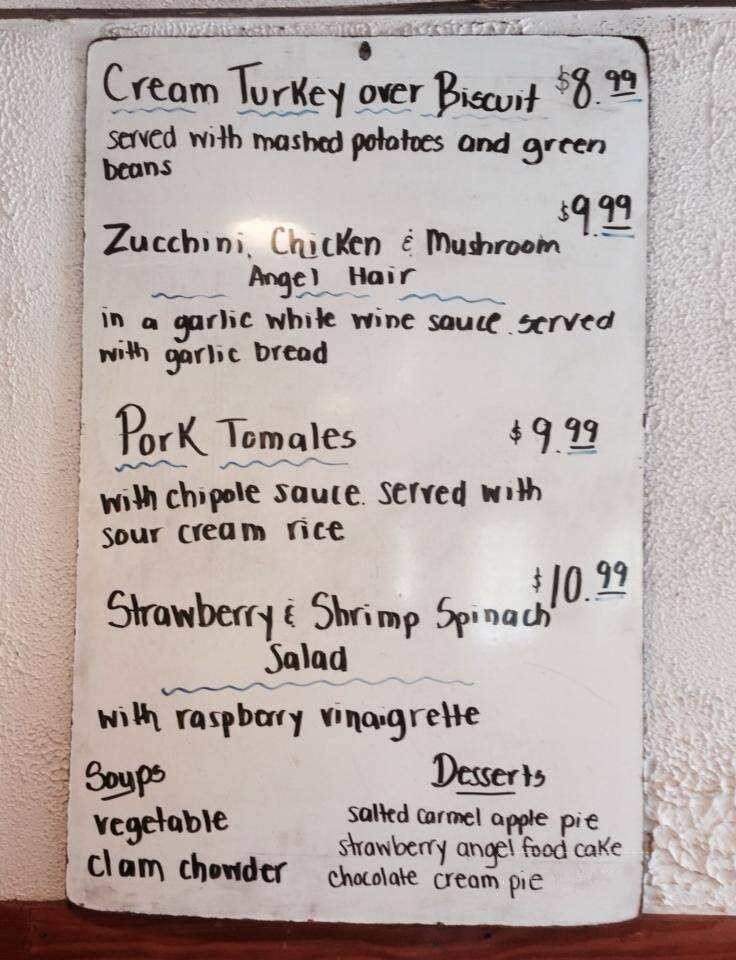 Cream Turkey over Biscuit $8.99
served with mashed potatoes and green
beans
$9.99
Zucchini, Chicken & Mushroom
Angel Hair
in a garlic white wine sauce. served
with garlic bread
Pork Tomales $9.99
with chipole sauce. served with
sour cream rice
$10.99
Strawberry & Shrimp Spinach
Salad
with raspberry vinaigrette
Soups
vegetable
clam chowder
Desserts
salted carmel apple pie
strawberry angel food cake
chocolate cream pie